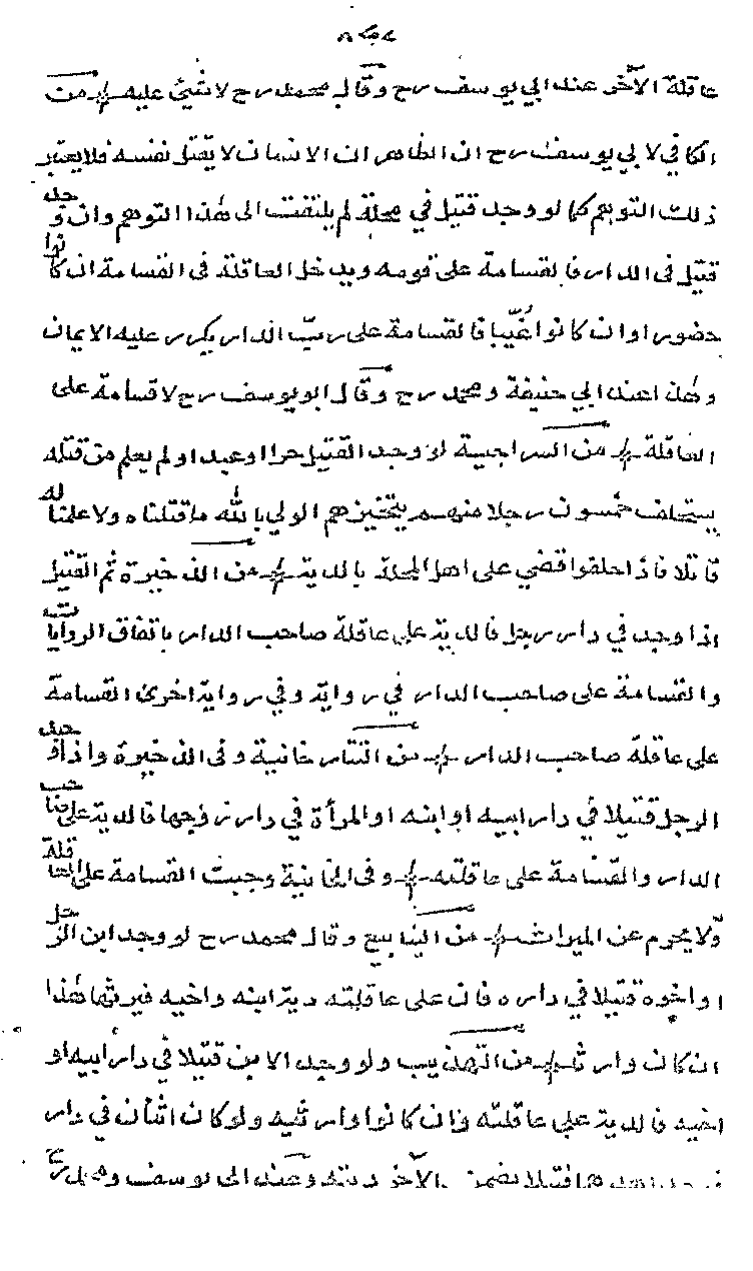 عاقلة الآخر عند ابي يوسف رح وقال محمد رح لا شيئ عليه من
الكافي لابي يوسف رح ان الظاهر ان الانسان لا يقتل نفسه فلا يعتبر
ذلك التوهم كما لو وجد قتيل في محلة لم يلتفت الى هذا التوهم وان وجد
قتيل فى الدار فالقسامة على قومه ويدخل العاقلة فى القسامة ان كانوا
حضورا وان كانوا غُيّبا فالقسامة على ربّ الدار يكرر عليه الايمان
وهذا عند ابي حنيفة ومحمد رح وقال ابو يوسف رح لا قسامة على
العاقلة من السراجية وجد القتيل حرا او عبدا ولم يعلم من قتله
يستحلف خمسون رجلا منهم يتخيرهم الولي بالله ما قتلناه ولا علمنا له
قاتلا فاذا حلفوا قضي على اهل المحلة بالدية من الذخيرة ثم القتيل
اذا وجد في دار رجل فالدية على عاقلة صاحب الدار باتفاق الروايات
والقسامة على صاحب الدار في رواية وفي رواية اخرى القسامة
على عاقلة صاحب الدار من التتارخانية وفى الذخيرة واذا وجد
الرجل قتيلا في دار ابيه او ابنه او المرأة في دار زوجها فالدية على صاحب
الدار والقسامة على عاقلته وفى الخانية وجبت القسامة على العاقلة
ولا يحرم عن الميراث من الينابيع وقال محمد رح لو وجد ابن الرجل
او اخوه قتيلا في داره فان على عاقلته دية ابنه واخيه فيرثها هذا
ان كان وارثه من التهذيب ولو وجد الابن قتيلا في دار أبيه او
اخيه فالدية على عاقلته وان كانوا وارثيه ولو كان اثنان في دار
فوجد احدهما قتيلا يضمن الآخر ديته وعند ابى يوسف ومحمد رح